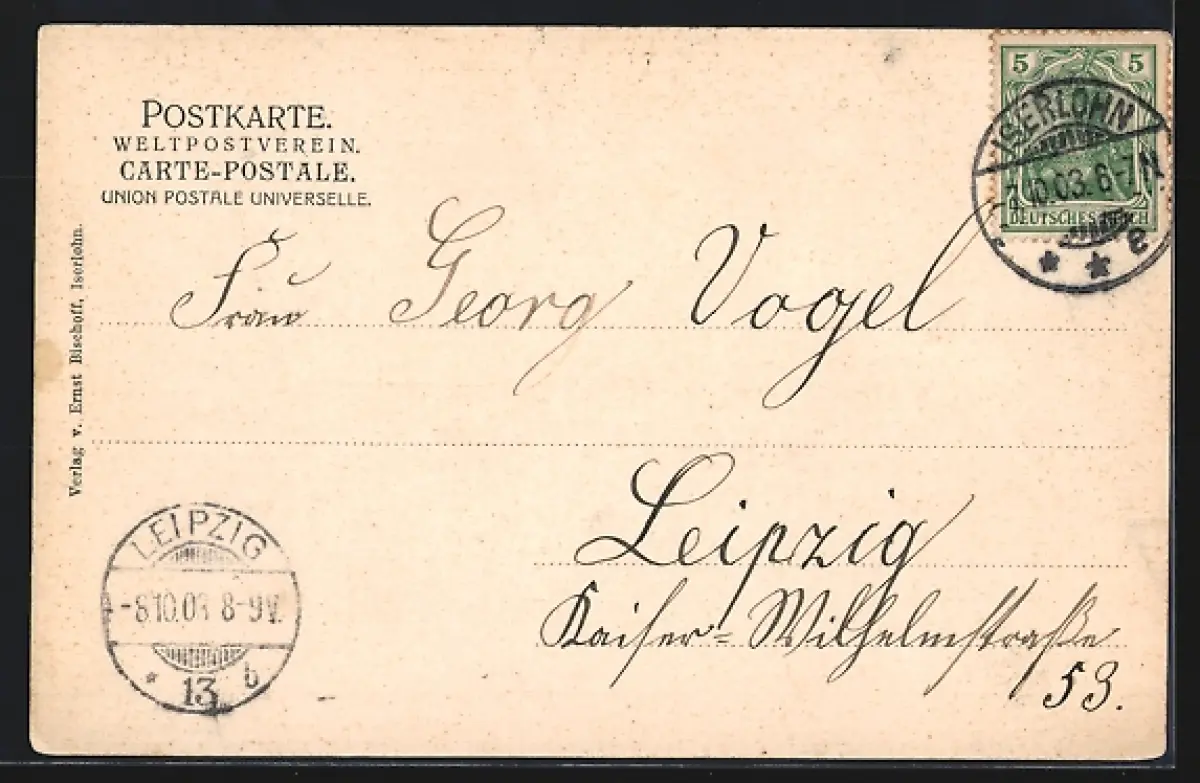 POSTKARTE.
WELTPOSTVEREIN.
CARTE-POSTALE.
UNION POSTALE UNIVERSELLE.
5 5
DEUTSCHES REICH
ISERLOHN
-7.10.03. 6-7 N
* * e
Frau Georg Vogel
Leipzig
Kaiser-Wilhelmstraße
53.
Verlag v. Ernst Bischoff, Iserlohn.
LEIPZIG
-8.10.03 8-9 V.
* 13 b